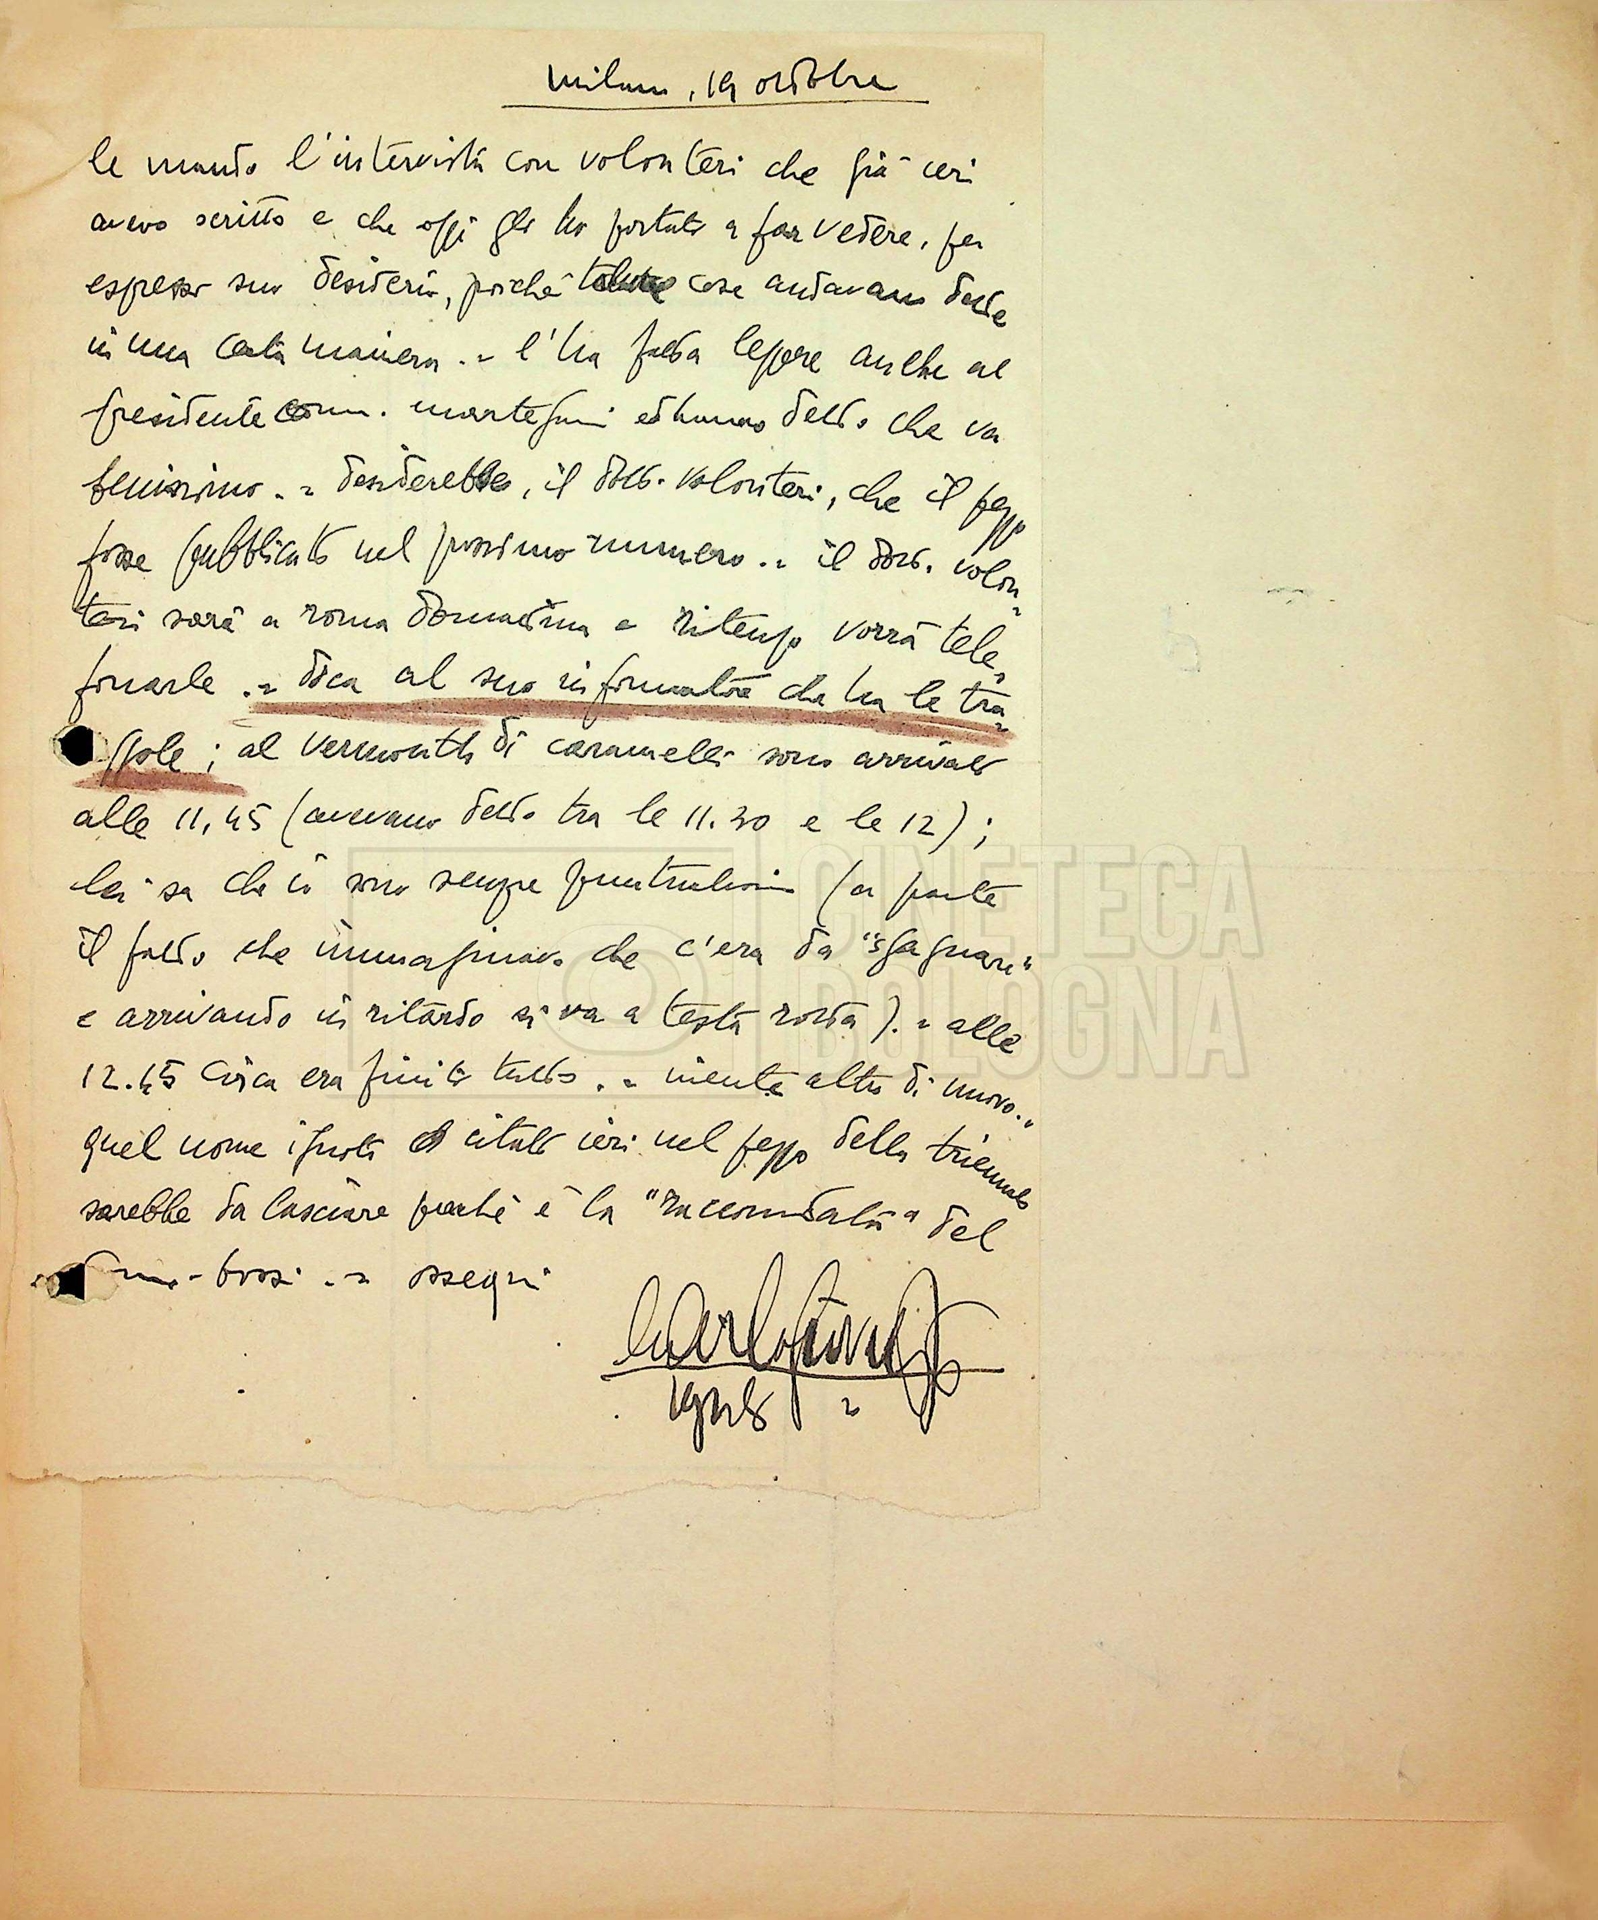 milano, 19 ottobre
le mando l'intervista con volonteri che già ieri
avevo scritto e che oggi gli ho portato a far vedere, per
espresso suo desiderio, poiché talune cose andavano dette
in una certa maniera .= l'ha fatta leggere anche al
presidente comm. martegani ed hanno detto che va
benissimo .= desidererebbe, il dott. volonteri, che il pezzo
fosse pubblicato nel prossimo numero .= il dott. volon=
teri sarà a roma domattina e ritengo vorrà tele=
fonarle .= dica al suo informatore che ha le tra=
ggole; al vermouth di caramelli sono arrivato
alle 11,45 (avevano detto tra le 11.30 e le 12);
lei sa che io sono sempre puntualissimo (a parte
il fatto che immaginavo che c'era da "sgagnare"
e arrivando in ritardo si va a testa rotta) .= alle
12.45 circa era finito tutto .= niente altro di nuovo.=
quel nome ignoto citato ieri nel pezzo della triennale
sarebbe da lasciare perché è la "raccomandata" del
bossi .= ossequi
CINETECA
BOLOGNA